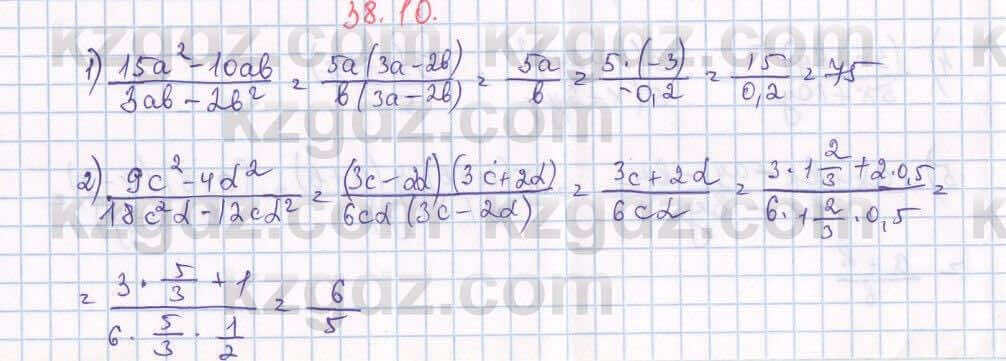 38.10.
1) (15a² - 10ab)/(3ab - 2b²) = 5a(3a - 2b)/b(3a - 2b) = 5a/b = 5·(-3)/-0,2 = 15/0,2 = 75
2) (9c² - 4d²)/(18c²d - 12cd²) = (3c - 2d)(3c + 2d)/6cd(3c - 2d) = (3c + 2d)/6cd = (3·1 2/3 + 2·0,5)/(6·1 2/3·0,5) =
= (3·5/3 + 1)/(6·5/3·1/2) = 6/5
kzgdz.com kzgdz.com
kzgdz.com
kzgdz.com kzgdz.com
kzgdz.com